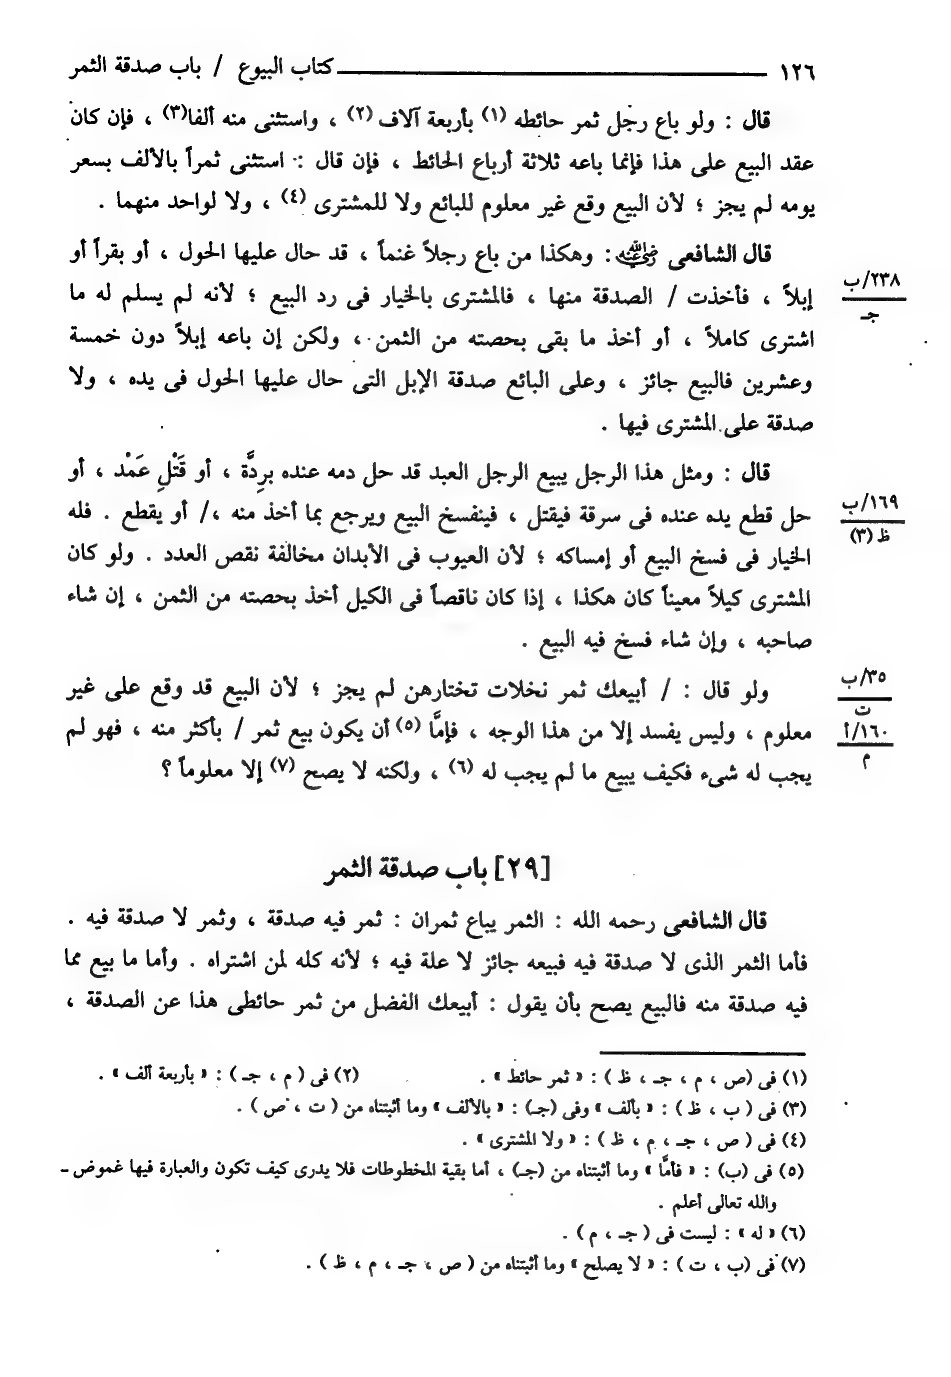 ١٢٦ ــــــــــــــــــــ كتاب البيوع / باب صدقة الثمر
قال : ولو باع رجل ثمر حائطه (١) بأربعة آلاف (٢) ، واستثنى منه ألفا(٣) ، فإن كان
عقد البيع على هذا فإنما باعه ثلاثة أرباع الحائط ، فإن قال : استثنى ثمراً بالألف بسعر
يومه لم يجز ؛ لأن البيع وقع غير معلوم للبائع ولا للمشترى (٤) ، ولا لواحد منهما .
قال الشافعى رضي الله عنه : وهكذا من باع رجلاً غنماً ، قد حال عليها الحول ، أو بقراً أو
إبلاً ، فأخذت / الصدقة منها ، فالمشترى بالخيار فى رد البيع ؛ لأنه لم يسلم له ما
اشترى كاملاً ، أو أخذ ما بقى بحصته من الثمن ، ولكن إن باعه إبلاً دون خمسة
وعشرين فالبيع جائز ، وعلى البائع صدقة الإبل التى حال عليها الحول فى يده ، ولا
صدقة على المشترى فيها .
٢٣٨/ب
جـ
قال : ومثل هذا الرجل يبيع الرجل العبد قد حل دمه عنده بِردَّة ، أو قَتْلِ عَمْد ، أو
حل قطع يده عنده فى سرقة فيقتل ، فينفسخ البيع ويرجع بما أخذ منه ،/ أو يقطع . فله
الخيار فى فسخ البيع أو إمساكه ؛ لأن العيوب فى الأبدان مخالفة نقص العدد . ولو كان
المشترى كيلاً معيناً كان هكذا ، إذا كان ناقصاً فى الكيل أخذ بحصته من الثمن ، إن شاء
صاحبه ، وإن شاء فسخ فيه البيع .
١٦٩/ب
ظ (٣)
ولو قال : / أبيعك ثمر نخلات تختارهن لم يجز ؛ لأن البيع قد وقع على غير
معلوم ، وليس يفسد إلا من هذا الوجه ، فإمَّا (٥) أن يكون بيع ثمر / بأكثر منه ، فهو لم
يجب له شىء فكيف يبيع ما لم يجب له (٦) ، ولكنه لا يصح (٧) إلا معلوماً ؟
٣٥/ب
ت
١٦٠/أ
م
[٢٩] باب صدقة الثمر
قال الشافعى رحمه الله : الثمر يباع ثمران : ثمر فيه صدقة ، وثمر لا صدقة فيه .
فأما الثمر الذى لا صدقة فيه فبيعه جائز لا علة فيه ؛ لأنه كله لمن اشتراه . وأما ما بيع مما
فيه صدقة منه فالبيع يصح بأن يقول : أبيعك الفضل من ثمر حائطى هذا عن الصدقة ،
(١) فى (ص ، م ، جـ ، ظ ) : « ثمر حائط » . (٢) فى ( م ، جـ ) : « بأربعة ألف » .
(٣) فى ( ب ، ظ ) : « بألف » وفى (جـ) : « بالألف » وما أثبتناه من ( ت ، ص ) .
(٤) فى ( ص ، جـ ، م ، ظ ) : « ولا المشترى » .
(٥) فى (ب) : « فأمَّا » وما أثبتناه من (جـ) ، أما بقية المخطوطات فلا يدرى كيف تكون والعبارة فيها غموض ـ
والله تعالى أعلم .
(٦) « له » : ليست فى ( جـ ، م ) .
(٧) فى (ب ، ت ) : « لا يصلح » وما أثبتناه من ( ص ، جـ ، م ، ظ ) .